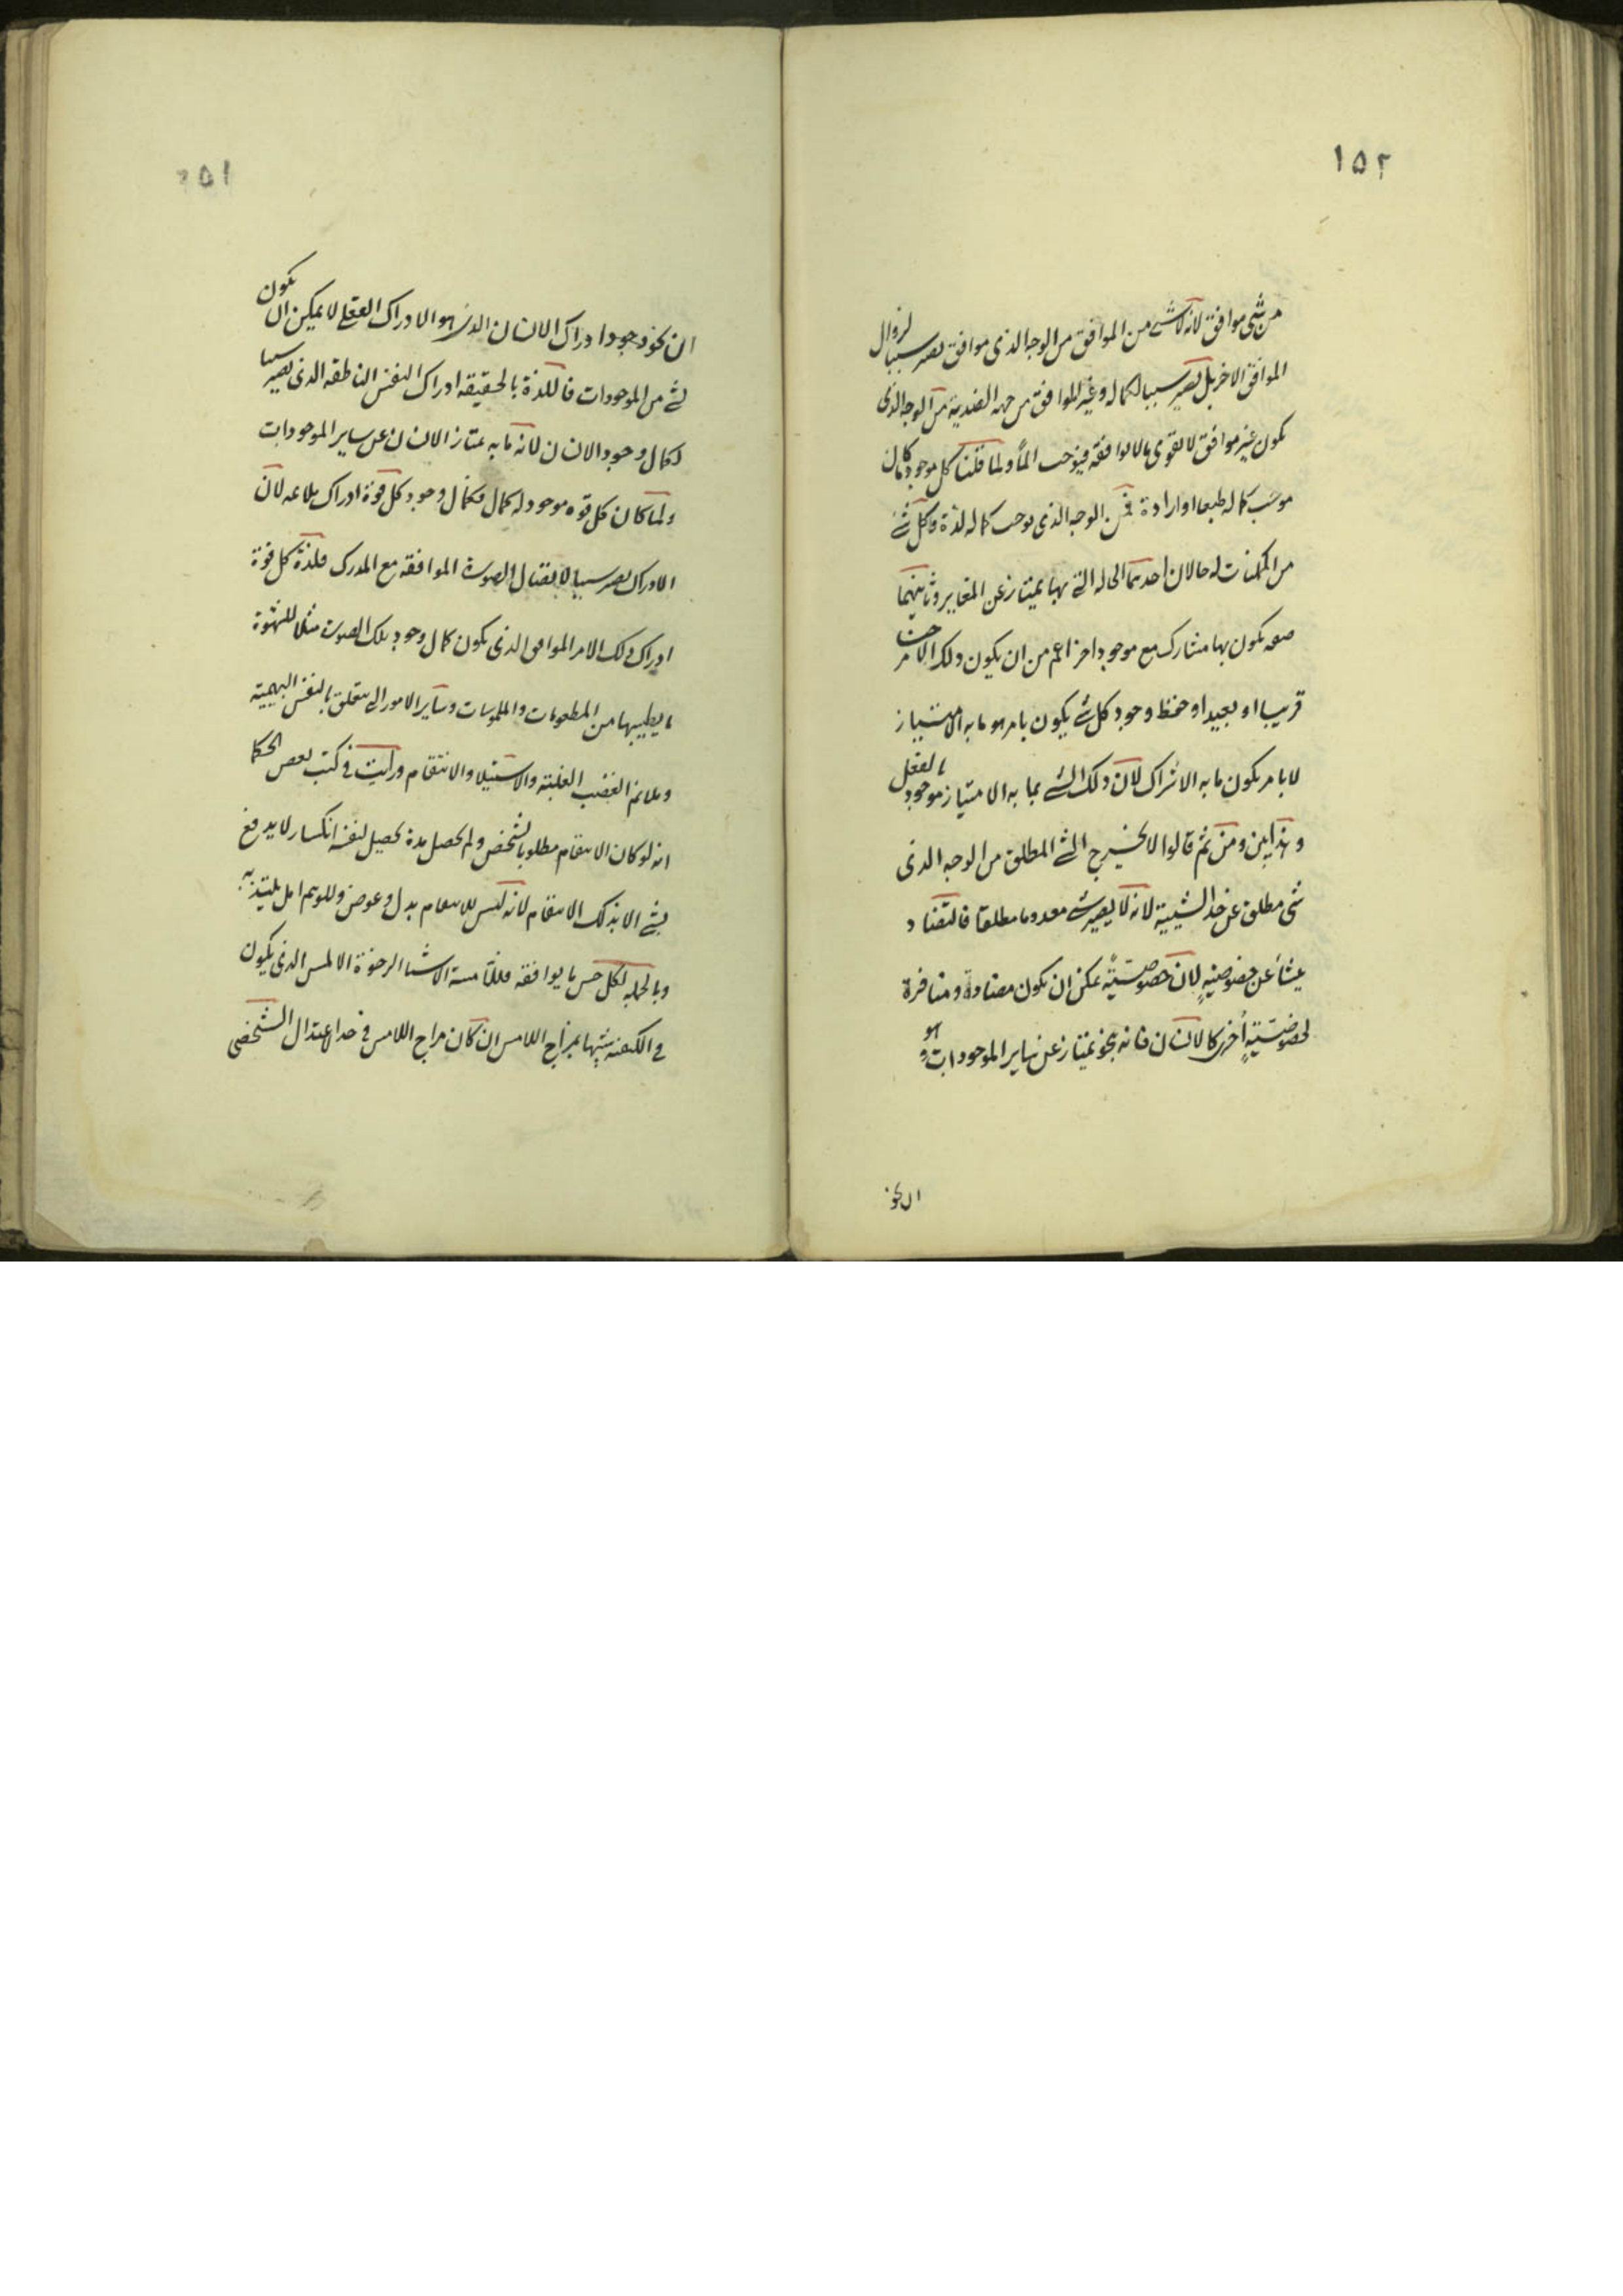 ١٥٢
من شی موافق لانه لا شے من الموافق من الوجه الذی موافق یصیر سببا لزوال
الموافق الاخر بل یصیر سببا لکماله وغیر الموافق من جهه الضدیة من الوجه الذی
یکون غیر موافق لا یقوی ما لا یوافقه فیوجب الماً ولما قلنا کل موجود کان
موجب کماله طبعا او ارادة فمن الوجه الذی یوجب کماله لذة وکل شے
من الممکنات له حالان احدیهما الحاله التے بها یمتاز عن المغایر وثانیتهما
صفه یکون بها مشارک مع موجود اخر اعم من ان یکون ذلک الامر
قریبا او بعیدا وحفظ وجود کل شے یکون بامر هو ما به الامتیاز
لا بامر یکون ما به الاشراک لان ذلک الشے بما به الامتیاز موجود بالفعل
وهذا بین ومن ثم قالوا لا یخرج الشے المطلق من الوجه الذی
شی مطلق عن حد الشیئیة لانه لا یصیر شے معدوما مطلقا فالتضاد
ینشأ عن خصوصیةٍ لان خصوصیّةً یمکن ان یکون مضادة ومنافرة
لخصوصیّةٍ اُخری کالانسان فانه بنحو یمتاز عن سایر الموجودات وهو
ان نحو
١٥١
ان نحو وجود ادراک الانسان الذی هو الادراک العقلے لا یمکن ان یکون
لشے من الموجودات فاللذة بالحقیقه ادراک النفس الناطقه الذی یصیر سببا
لکمال وجود الانسان لانه ما به یمتاز الانسان عن سایر الموجودات
ولما کان کل قوه موجود له کمال فکمال وجود کل قوة ادراک ملائمه لان
الادراک یصیر سببا لاتصال الصورة الموافقه مع المدرک فلذة کل قوة
ادراک ذلک الامر الموافق الذی یکون کمال وجود تلک الصورت مثلا للشهوة
ما یطیبها من المطعومات والملموسات وسایر الامور التے یتعلق بالنفس البهیمیة
وملائم الغضب الغلبة والاستیلا والانتقام ورایت فی کتب بعض الحکما
انه لو کان الانتقام مطلوبا لشخص ولم یحصل مدة یحصل لنفسه انکسار لا یدفع
بشے الا بذلک الانتقام لانه لیس للانتقام بدل وعوض وللوهم امل یلتذ به
وبالجمله لکل حس ما یوافقه فللّامسة الاشیا الرخوة الا لمس الذی یکون
فی الکیفیه شبیها بمزاج اللامس ان کان مزاج اللامس فی حد الاعتدال الشخصی